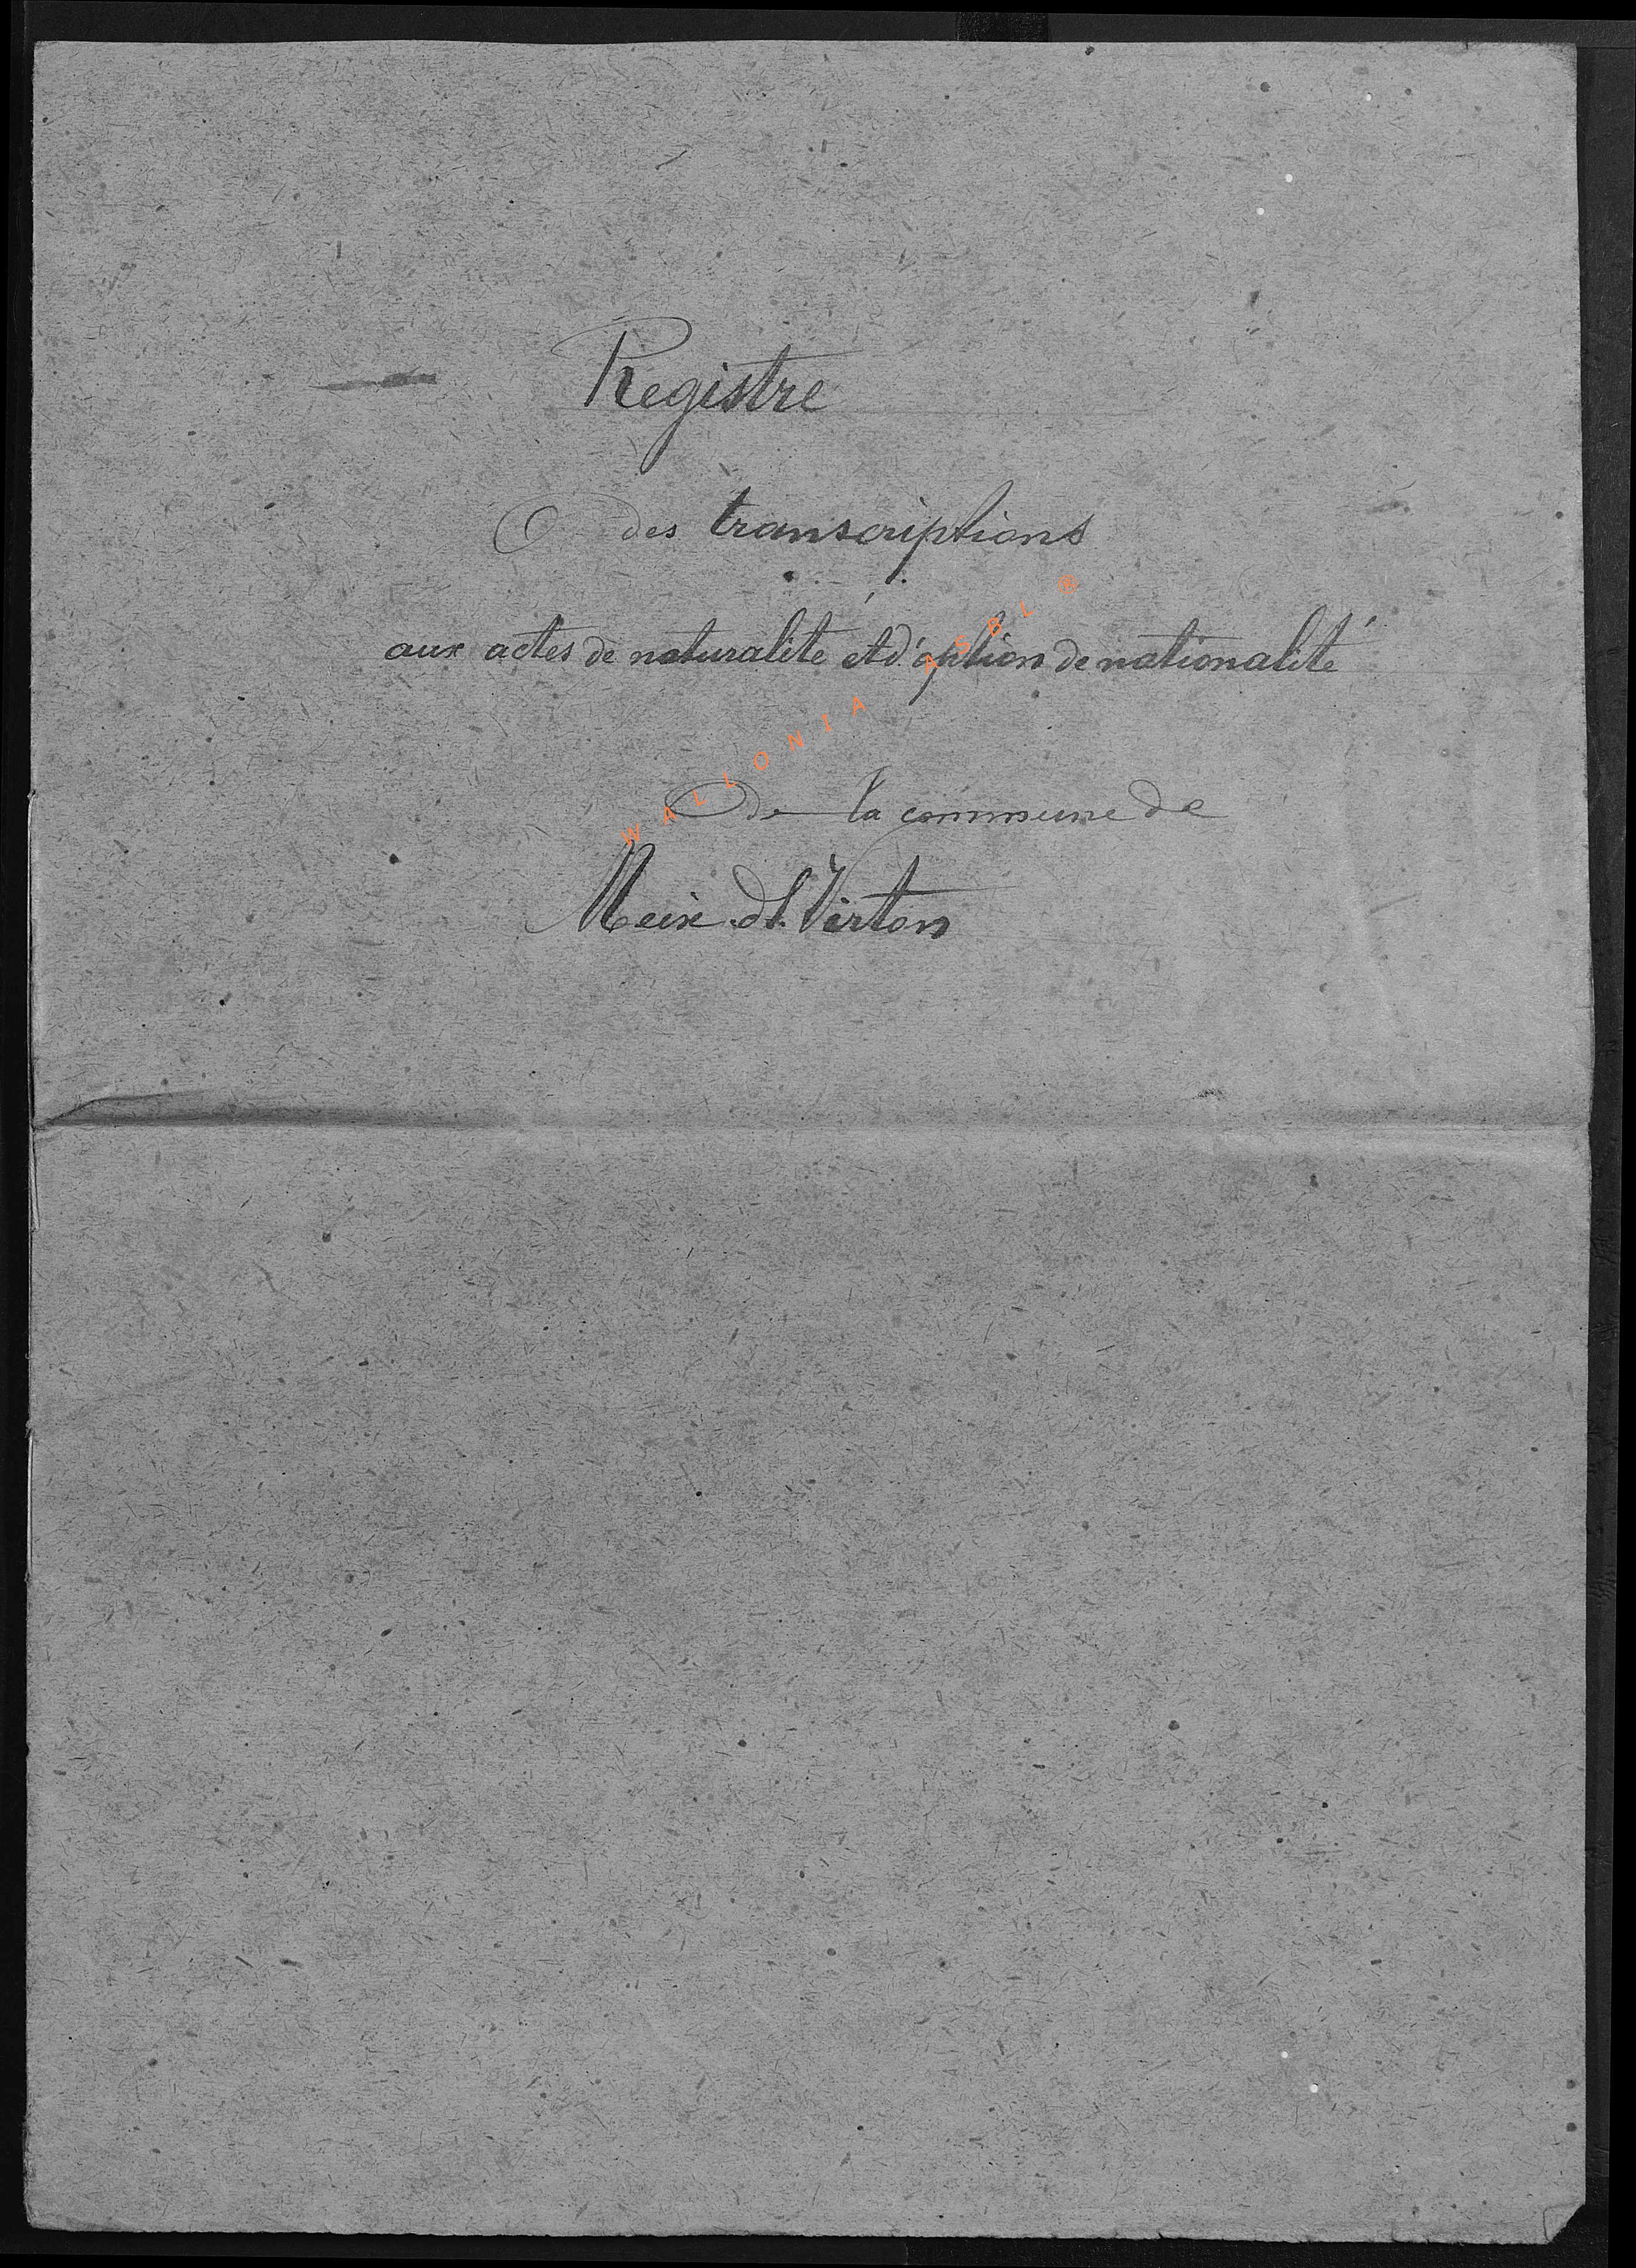 Registre
des transcriptions
aux actes de naturalité et d'option de nationalité
De la commune de
Meix-dt. Virton
WALLONIA ASBL ®